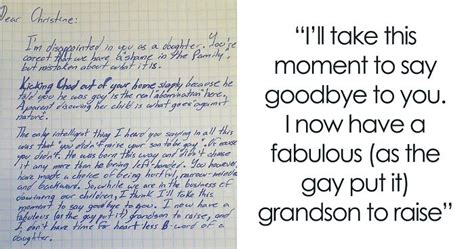 Dear Christine:
I'm disappointed in you as a daughter. You're
correct that we have a shame in the family,
but mistaken about what it is.
Kicking Chad out of your home simply because he
told you he was gay is the real "abomination" here.
A parent disowning her child is what goes against
nature.
The only intelligent thing I heard you saying in all this
was that "you didn't raise your son to be gay". Of course
you didn't. He was born this way and didn't choose
it any more than he being left-handed. You however,
have made a choice of being hurtful, narrow-minded
and backward. So, while we are in the business of
disowning our children, I think I'll take this
moment to say goodbye to you. I now have a
fabulous (as the gay put it) grandson to raise, and
I don't have time for heart less B-word of a
daughter.
“I’ll take this
moment to say
goodbye to you.
I now have a
fabulous (as the
gay put it)
grandson to raise”